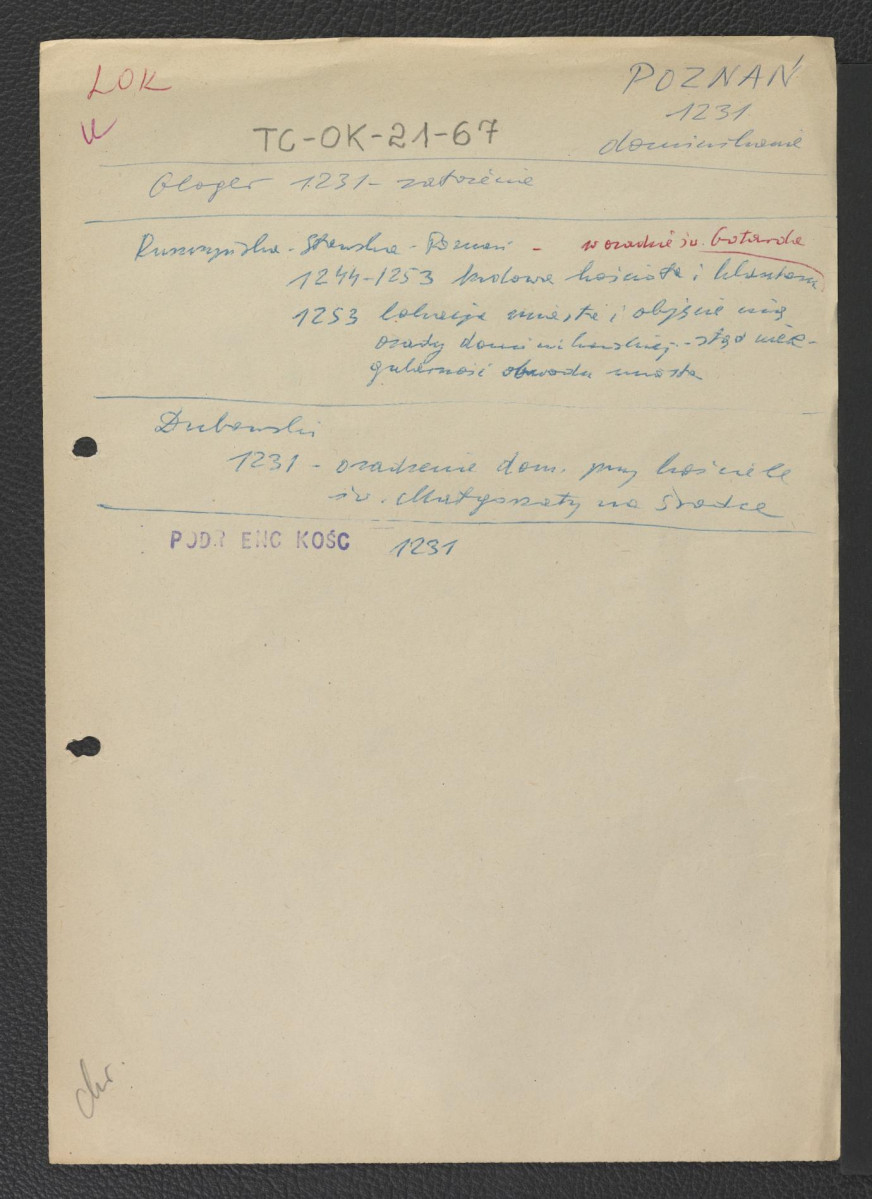 LOK
POZNAŃ
1231
TC-OK-21-67
dominikanie
Gloger 1231 - założenie
Ruszczyńska - Sławska - Poznań - w osadzie św. Gotarda
1244-1253 budowa kościoła i klasztoru
1253 lokacja miasta i objęcie nią
osady dominikańskiej - stąd niere-
gularność obwodu miasta
Dubowski
1231 - osadzenie dom. przy kościele
św. Małgorzaty na Śródce
PODR ENC KOŚC 1231
chr.